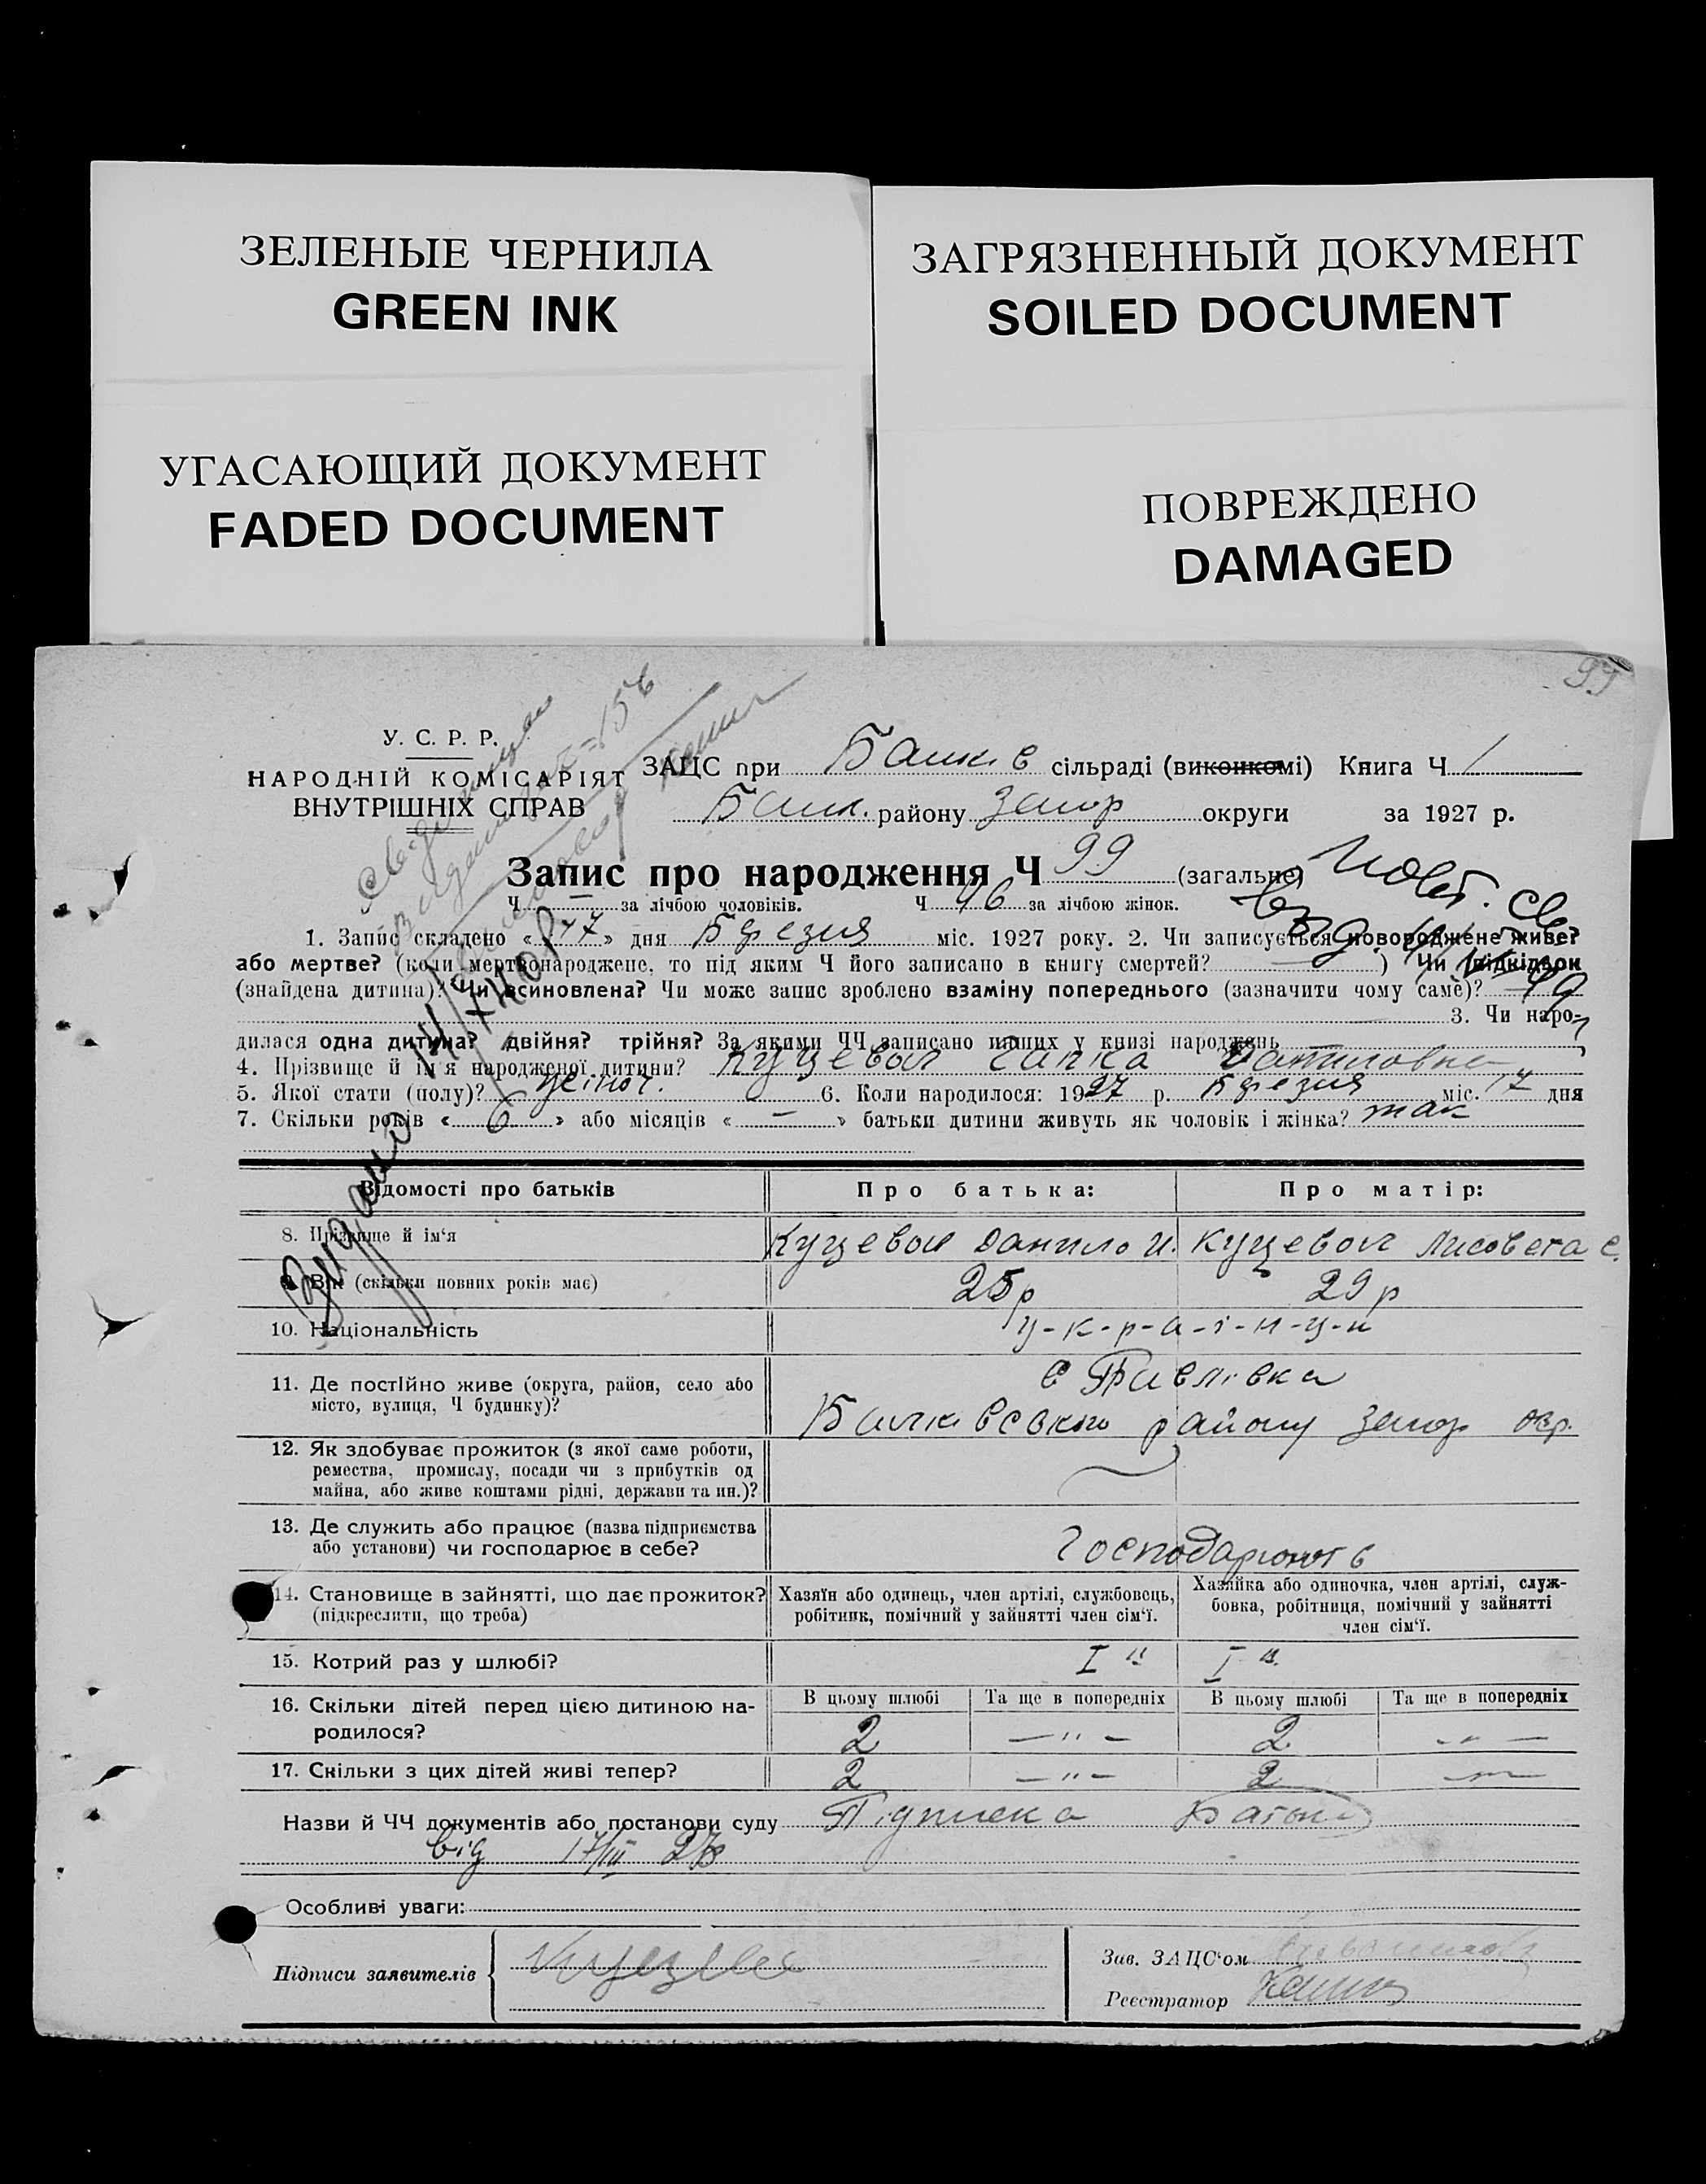 ЗЕЛЕНЫЕ ЧЕРНИЛА
GREEN INK
УГАСАЮЩИЙ ДОКУМЕНТ
FADED DOCUMENT
ЗАГРЯЗНЕННЫЙ ДОКУМЕНТ
SOILED DOCUMENT
ПОВРЕЖДЕНО
DAMAGED
99
У. С. Р. Р.
НАРОДНІЙ КОМІСАРІЯТ
ВНУТРІШНІХ СПРАВ
ЗАЦС при сільраді (виконкомі) Книга Ч 1
району Запор округи за 1927 р.
Запис про народження Ч 99 (загальне)
Ч — за лічбою чоловіків. Ч 46 за лічбою жінок.
1. Запис складено «17» дня Березня міс. 1927 року. 2. Чи записується новороджене живе?
або мертве? (коли мертвонароджене, то під яким Ч його записано в книгу смертей? ) Чи відкідьок
(знайдена дитина)? Чи всиновлена? Чи може запис зроблено взаміну попереднього (зазначити чому саме)?
3. Чи наро-
дилася одна дитина? двійня? трійня? За якими ЧЧ записано инших у книзі народжень
4. Прізвище й ім'я народженої дитини? Куцевол Гапка Даниловна
5. Якої стати (полу)? жіноч. 6. Коли народилося: 1927 р. Березня міс. 17 дня
7. Скільки років «6» або місяців «—» батьки дитини живуть як чоловік і жінка? так
Видано
Відомості про батьків Про батька: Про матір:
8. Прізвище й ім'я Куцевол Данило И. Куцевол Лисовета С.
9. Вік (скільки повних років має) 25 р 29 р
10. Національність у-к-р-а-і-н-ц-и
11. Де постійно живе (округа, район, село або
місто, вулиця, Ч будинку)?
с Павлівка
району Запор окр.
12. Як здобуває прожиток (з якої саме роботи,
ремества, промислу, посади чи з прибутків од
майна, або живе коштами рідні, держави та ин.)?
13. Де служить або працює (назва підприємства
або установи) чи господарює в себе?
Господарюють
14. Становище в зайнятті, що дає прожиток?
(підкреслити, що треба)
Хазяїн або одинець, член артілі, службовець,
робітник, помічний у зайнятті член сім'ї.
Хазяйка або одиночка, член артілі, служ-
бовка, робітниця, помічний у зайнятті
член сім'ї.
15. Котрий раз у шлюбі? I й I й
16. Скільки дітей перед цією дитиною на-
родилося?
В цьому шлюбі Та ще в попередніх В цьому шлюбі Та ще в попередніх
2 — " — 2 — " —
17. Скільки з цих дітей живі тепер? 2 — " — 2 — " —
Назви й ЧЧ документів або постанови суду Підписка
від 17/III 27
Особливі уваги:
Підписи заявителів
Зав. ЗАЦС'ом
Реєстратор